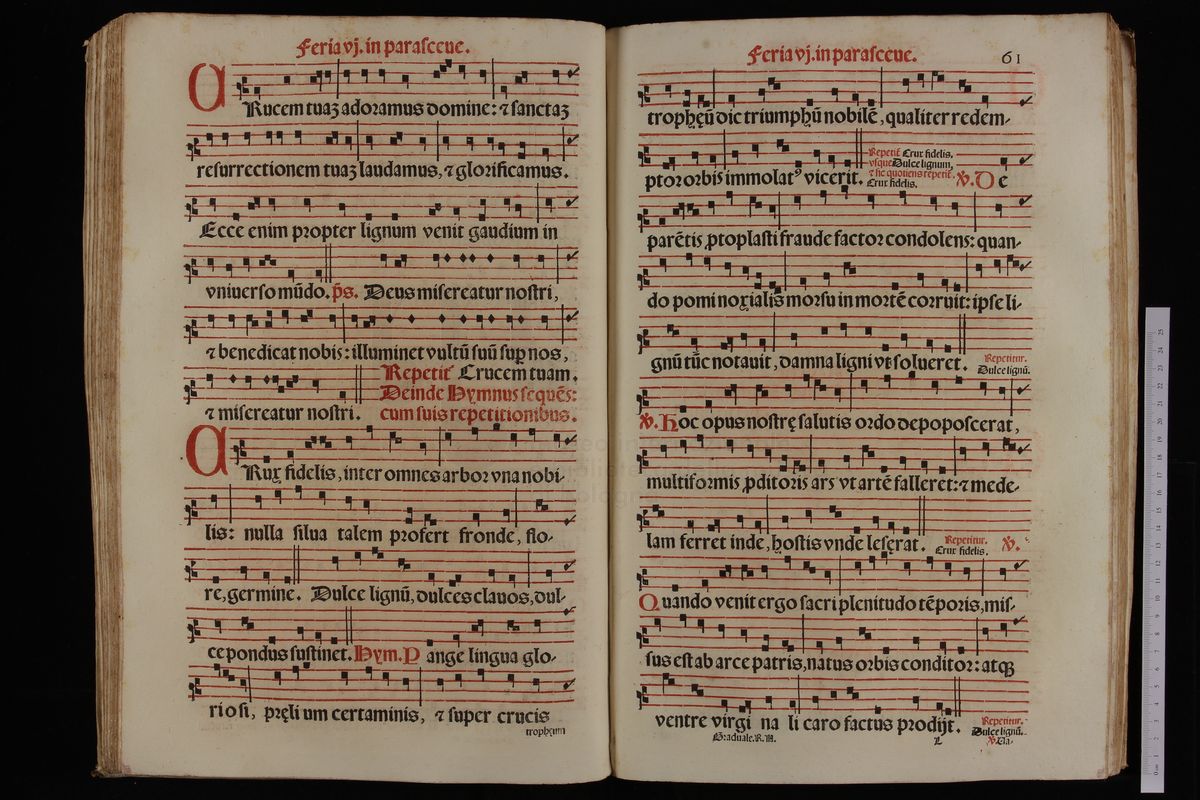 Feria vj. in parasceue.
CRucem tuaʒ adoramus domine: ⁊ sanctaʒ
resurrectionem tuaʒ laudamus, ⁊ glorificamus.
Ecce enim propter lignum venit gaudium in
vniuerso mūdo. p̄s. Deus misereatur nostri,
⁊ benedicat nobis: illuminet vultū suū sup nos,
⁊ misereatur nostri. Repetit̃ Crucem tuam.
Deinde Hymnus sequēs:
cum suis repetitionibus.
CRux fidelis, inter omnes arbor vna nobi-
lis: nulla silua talem profert fronde, flo-
re, germine. Dulce lignū, dulces clauos, dul-
ce pondus sustinet. Hym. P ange lingua glo-
riosi, pręlium certaminis, ⁊ super crucis
trophęum
Feria vj. in parasceue. 61
trophęū dic triumphū nobilē, qualiter redem-
ptor orbis immolatꝰ vicerit. Repetit̃ Crux fidelis, vsque Dulce lignum, ⁊ sic quoties repetit̃ Crux fidelis. ℣. D e
parētis ꝓtoplasti fraude factor condolens: quan-
do pomi noxialis morsu in mortē corruit: ipse li-
gnū tūc notauit, damna ligni vt solueret. Repetitur. Dulce lignū.
℣. Hoc opus nostrę salutis ordo depoposcerat,
multiformis ꝓditoris ars vt artē falleret: ⁊ mede-
lam ferret inde, hostis vnde leserat. Repetitur. Crux fidelis. ℣.
Quando venit ergo sacri plenitudo tēporis, mis-
sus est ab arce patris, natus orbis conditor: atqꝫ
ventre virgi na li caro factus prodijt. Repetitur. Dulce lignū.
Graduale. R. M. L ℣. Va-